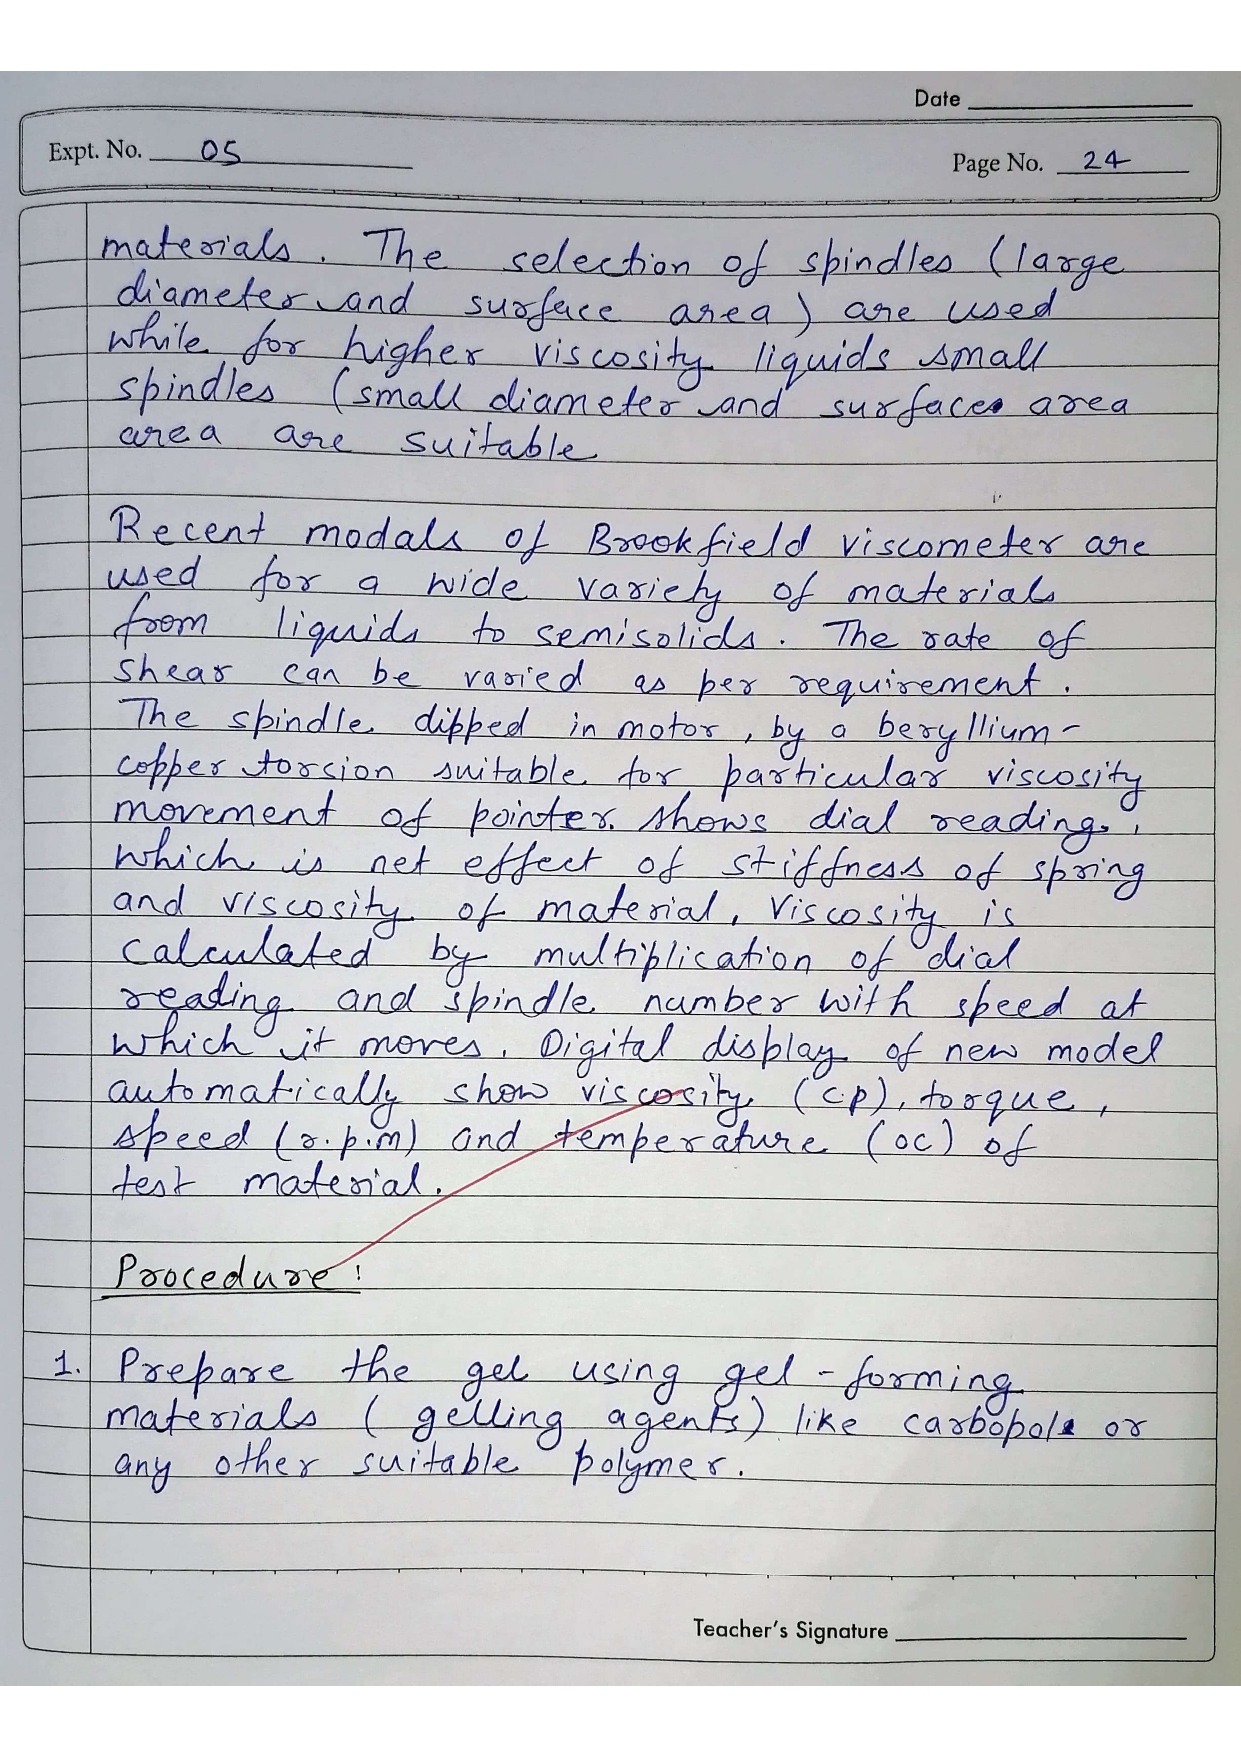 Date
Expt. No. 05
Page No. 24
materials. The selection of spindles (large
diameter and surface area) are used
while for higher viscosity liquids small
spindles (small diameter and surface area
area are suitable
Recent modals of Brookfield viscometer are
used for a wide variety of materials
from liquids to semisolids. The rate of
shear can be varied as per requirement.
The spindle dipped in motor, by a beryllium-
copper torsion suitable for particular viscosity
movement of pointer shows dial reading,
which is net effect of stiffness of spring
and viscosity of material, Viscosity is
calculated by multiplication of dial
reading and spindle number with speed at
which it moves. Digital display of new model
automatically show viscosity (cp), torque,
speed (r.p.m) and temperature (oc) of
test material.
Procedure:
1. Prepare the gel using gel-forming
materials (gelling agents) like carbopol or
any other suitable polymer.
Teacher's Signature